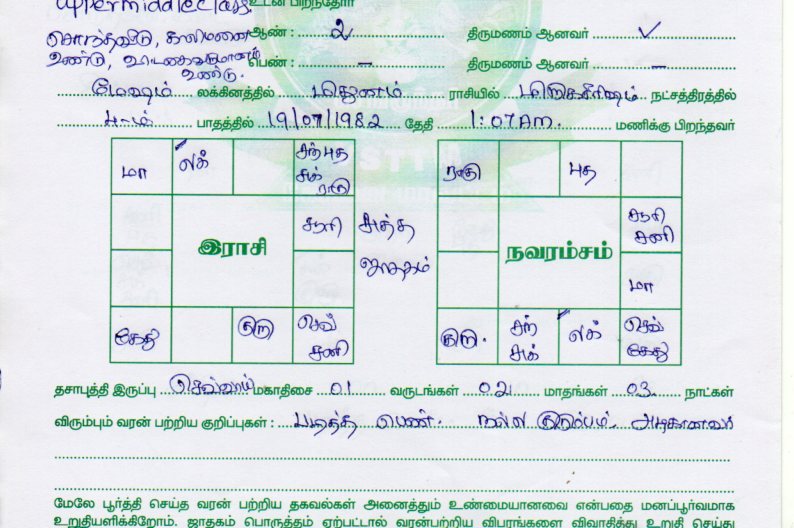 uppermiddleclass. உடன் பிறந்தோர்
சொந்தவீடு, காலிமனை ஆண் : 2 திருமணம் ஆனவர் ✓
உண்டு, வாடகைவருமானம் பெண் : – திருமணம் ஆனவர் –
உண்டு.
மேஷம் லக்கினத்தில் மிதுனம் ராசியில் மிருகசீரிஷம் நட்சத்திரத்தில்
4-ம் பாதத்தில் 19/07/1982 தேதி 1:07 Am. மணிக்கு பிறந்தவர்
மா லக் சந் புத சுக் ராகு
சூரி
இராசி
கேது குரு செவ் சனி
சுத்த ஜாதகம்
ராகு புத
சூரி சனி
நவாம்சம்
மா
குரு. சந் சுக் லக் செவ் கேது
தசாபுத்தி இருப்பு செவ்வாய் மகாதிசை 01 வருடங்கள் 02 மாதங்கள் 03 நாட்கள்
விரும்பும் வரன் பற்றிய குறிப்புகள் : படித்த பெண். நல்ல குடும்பம். அழகானவர்
மேலே பூர்த்தி செய்த வரன் பற்றிய தகவல்கள் அனைத்தும் உண்மையானவை என்பதை மனப்பூர்வமாக
உறுதியளிக்கிறோம். ஜாதகம் பொருத்தம் ஏற்பட்டால் வரன்பற்றிய விபரங்களை விவாதித்து உறுதி செய்து